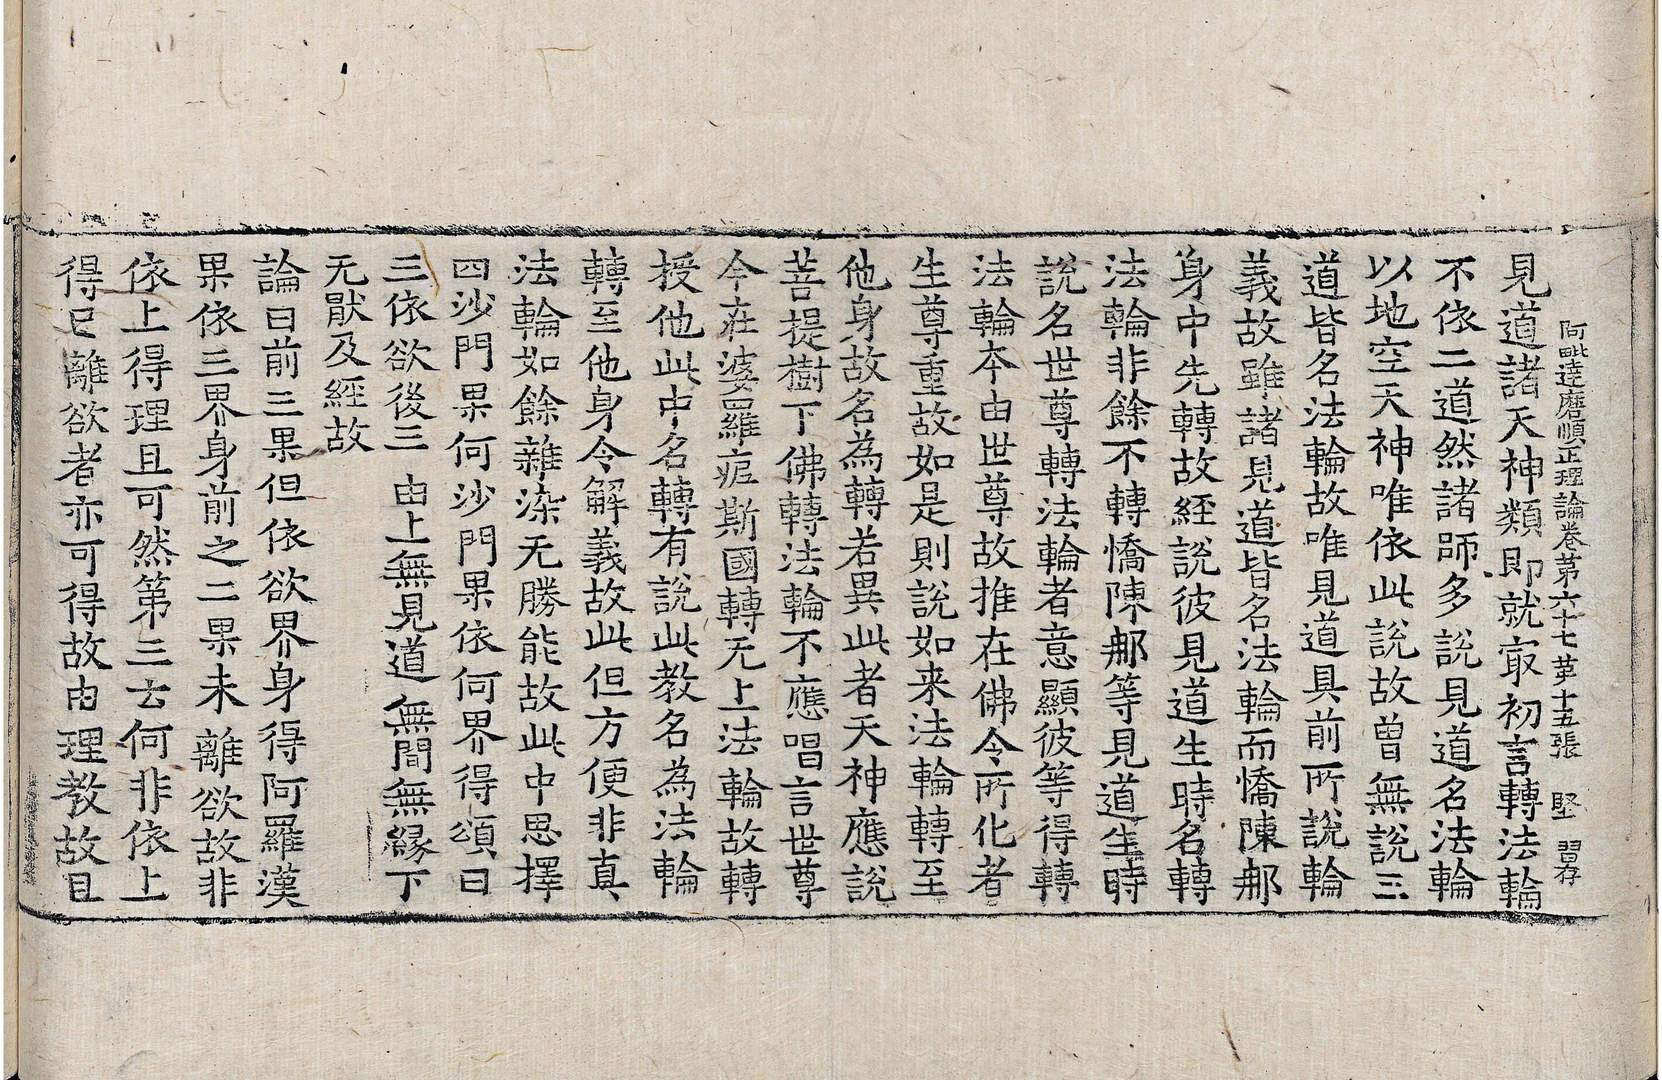 阿毗達磨順正理論卷第六十七 第十五張 堅 習存
見道諸天神類即就㝡初言轉法輪
不依二道然諸師多說見道名法輪
以地空天神唯依此說故曾無說三
道皆名法輪故唯見道具前所說輪
義故雖諸見道皆名法輪而憍陳那
身中先轉故經說彼見道生時名轉
法輪非餘不轉憍陳那等見道生時
說名世尊轉法輪者意顯彼等得轉
法輪本由世尊故推在佛令所化者
生尊重故如是則說如来法輪轉至
他身故名為轉若異此者天神應說
菩提樹下佛轉法輪不應唱言世尊
今在婆羅痆斯國轉无上法輪故轉
授他此中名轉有說此教名為法輪
轉至他身令解義故此但方便非真
法輪如餘雜染无勝能故此中思擇
四沙門果何沙門果依何界得頌曰
三依欲後三 由上無見道 無間無縁下
无猒及經故
論曰前三果但依欲界身得阿羅漢
果依三界身前之二果未離欲故非
依上得理且可然第三云何非依上
得已離欲者亦可得故由理教故且